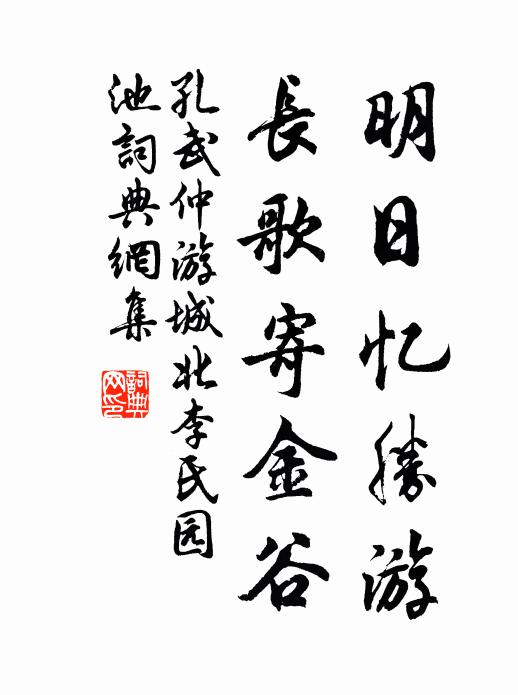 明日忆勝游
長歌寄金谷
孔武仲游城北李氏园
池詞典網集
詞典网印